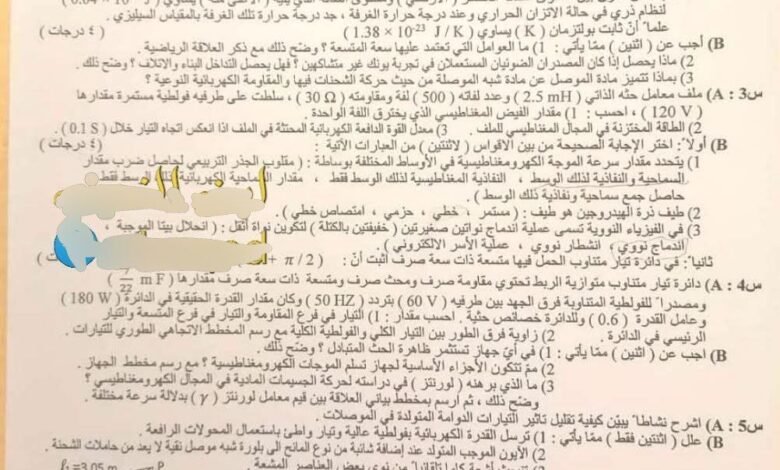 لنظام ذري في حالة الاتزان الحراري وعند درجة حرارة الغرفة ، جد درجة حرارة تلك الغرفة بالمقياس السيليزي .
علماً أنّ ثابت بولتزمان ( K ) يساوي ( 1.38 × 10⁻²³ J / K ) ( ٤ درجات )
B) أجب عن ( اثنين ) ممّا يأتي : 1) ما العوامل التي تعتمد عليها سعة المتسعة ؟ وضّح ذلك مع ذكر العلاقة الرياضية .
2) ماذا يحصل إذا كان المصدران الضوئيان المستعملان في تجربة يونك غير متشاكهين ؟ فهل يحصل التداخل البناء والاتلاف ؟ وضح ذلك .
3) بماذا تتميز مادة الموصل عن مادة شبه الموصلة من حيث حركة الشحنات فيها والمقاومة الكهربائية النوعية ؟
س3 : A) ملف معامل حثه الذاتي ( 2.5 mH ) وعدد لفاته ( 500 ) لفة ومقاومته ( 30 Ω ) ، سلطت على طرفيه فولطية مستمرة مقدارها
( 120 V ) ، احسب : 1) مقدار الفيض المغناطيسي الذي يخترق اللفة الواحدة .
2) الطاقة المختزنة في المجال المغناطيسي للملف . 3) معدل القوة الدافعة الكهربائية المحتثة في الملف اذا انعكس اتجاه التيار خلال ( 0.1 S )
B) أولاً : اختر الإجابة الصحيحة من بين الاقواس ( لاثنتين ) من العبارات الآتية : ( ٤ درجات )
1) يتحدد مقدار سرعة الموجة الكهرومغناطيسية في الأوساط المختلفة بوساطة : ( مقلوب الجذر التربيعي لحاصل ضرب مقدار
السماحية والنفاذية لذلك الوسط ، النفاذية المغناطيسية لذلك الوسط فقط ، مقدار السماحية الكهربائية لذلك الوسط فقط
حاصل جمع سماحية ونفاذية ذلك الوسط ) .
2) طيف ذرة الهيدروجين هو طيف : ( مستمر ، خطي ، حزمي ، امتصاص خطي ) .
3) في الفيزياء النووية تسمى عملية اندماج نواتين صغيرتين ( خفيفتين بالكتلة ) لتكوين نواة أثقل : ( انحلال بيتا الموجبة ،
اندماج نووي ، انشطار نووي ، عملية الأسر الالكتروني ) .
ثانياً : في دائرة تيار متناوب الحمل فيها متسعة ذات سعة صرف أثبت أنّ : + π / 2 )
س4 : A) دائرة تيار متناوب متوازية الربط تحتوي مقاومة صرف ومحث صرف ومتسعة ذات سعة صرف مقدارها ( 7/22 m F )
ومصدراً للفولطية المتناوبة فرق الجهد بين طرفيه ( 60 V ) بتردد ( 50 HZ ) وكان مقدار القدرة الحقيقية في الدائرة ( 180 W )
وعامل القدرة ( 0.6 ) وللدائرة خصائص حثية . احسب مقدار : 1) التيار في فرع المقاومة والتيار في فرع المتسعة والتيار
الرئيسي في الدائرة . 2) زاوية فرق الطور بين التيار الكلي والفولطية الكلية مع رسم المخطط الاتجاهي الطوري للتيارات .
B) اجب عن ( اثنين ) ممّا يأتي : 1) في أيّ جهاز تستثمر ظاهرة الحث المتبادل ؟ وضّح ذلك .
2) ممّ تتكون الأجزاء الأساسية لجهاز تسلم الموجات الكهرومغناطيسية ؟ مع رسم مخطط الجهاز .
3) ما الذي برهنه ( لورنتز ) في دراسته لحركة الجسيمات المادية في المجال الكهرومغناطيسي ؟
وضّح ذلك ، ثم أرسم بمخطط بياني العلاقة بين قيم معامل لورنتز ( γ ) بدلالة سرعة مختلفة .
س5 : A) اشرح نشاطاً يبيّن كيفية تقليل تأثير التيارات الدوامة المتولدة في الموصلات .
B) علل ( اثنتين فقط ) ممّا يأتي : 1) ترسل القدرة الكهربائية بفولطية عالية وتيار واطئ باستعمال المحولات الرافعة .
2) الأيون الموجب المتولد عند إضافة شائبة من نوع المانح الى بلورة شبه موصل نقية لا يعد من حاملات الشحنة .